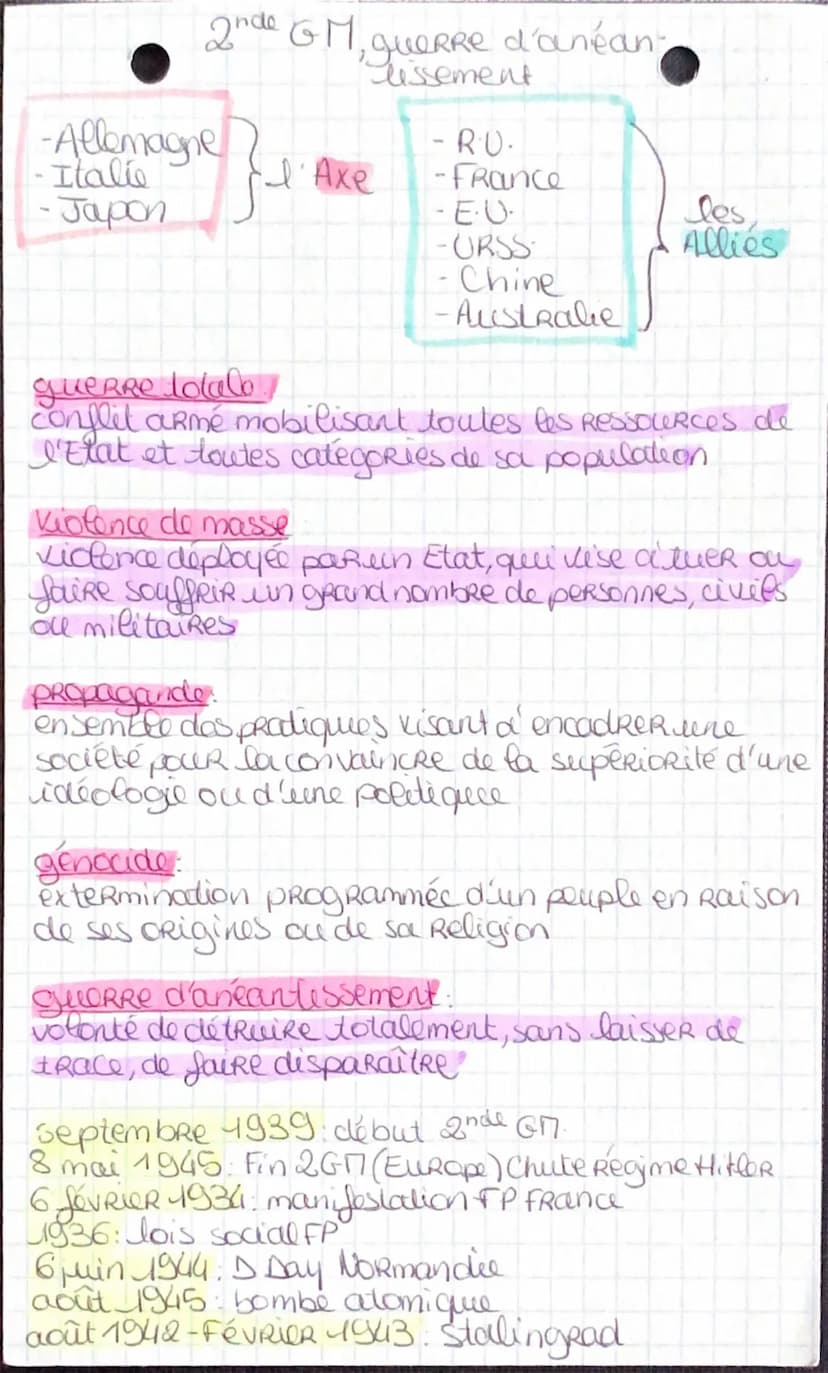 2nde GM, guerre d'anéan-
tissement
- Allemagne
- Italie
- Japon
l'Axe
- R.U.
- France
- E.U.
- URSS
- Chine
- Australie
les
Alliés
guerre totale:
conflit armé mobilisant toutes les ressources de
l'Etat et toutes catégories de sa population
violence de masse
violence déployée par un Etat, qui vise à tuer ou
faire souffrir un grand nombre de personnes, civils
ou militaires
propagande:
ensemble des pratiques visant à encadrer une
société pour la convaincre de la supériorité d'une
idéologie ou d'une politique
génocide:
extermination programmée d'un peuple en raison
de ses origines ou de sa religion
guerre d'anéantissement:
volonté de détruire totalement, sans laisser de
trace, de faire disparaître
septembre 1939: début 2nde GM.
8 mai 1945: Fin 2GM (Europe) Chute Régime Hitler
6 février 1934: manifestation FP France
1936: lois social FP
6 juin 1944: D Day Normandie
août 1945: bombe atomique
août 1942 - Février 1943: Stalingrad